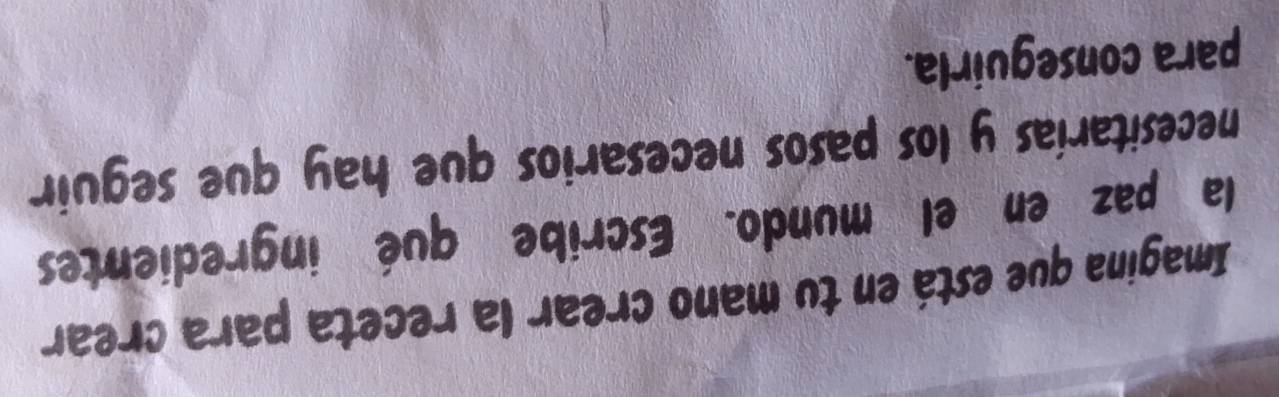 Imagina que está en tu mano crear la receta para crear
la paz en el mundo. Escribe qué ingredientes
necesitarías y los pasos necesarios que hay que seguir
para conseguirla.